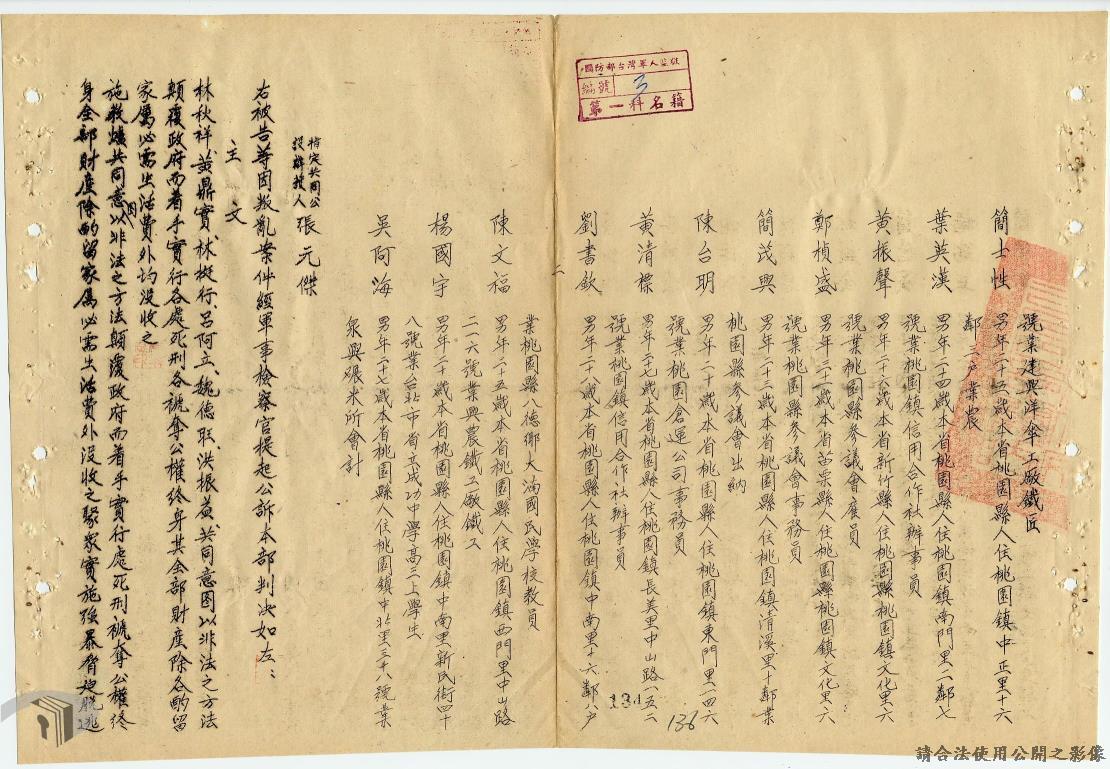 國防部台灣軍人監獄
編號 3
第一科名籍
號業建興洋傘工廠鐵匠
簡士性 男年二十五歲本省桃園縣人住桃園鎮中正里十六
鄰二戶業農
葉英漢 男年二十四歲本省桃園縣人住桃園鎮南門里一鄰七
號業桃園鎮信用合作社辦事員
黃振聲 男年二十六歲本省新竹縣人住桃園鎮文化里六
號業桃園縣參議會雇員
鄭楨盛 男年二十一歲本省苗栗縣人住桃園縣桃園鎮文化里六
號業桃園縣參議會事務員
簡茂興 男年二十三歲本省桃園縣人住桃園鎮清溪里十鄰業
桃園縣參議會出納
陳台明 男年二十歲本省桃園縣人住桃園鎮東門里一四六
號業桃園倉運公司事務員
黃清標 男年二十七歲本省桃園縣人住桃園鎮長美里中山路一五二
號業桃園鎮信用合作社辦事員
劉書欽 男年二十八歲本省桃園縣人住桃園鎮中南里十六鄰八戶
二
134
136
業桃園縣八德鄉大湳國民學校教員
陳文福 男年二十五歲本省桃園縣人住桃園鎮西門里中山路
二一六號業興農鐵工廠鐵工
楊國宇 男年二十歲本省桃園縣人住桃園鎮中南里新民街四十
八號業台北市省立成功中學高三上學生
吳阿海 男年二十七歲本省桃園縣人住桃園鎮中北里三十八號業
泉興碾米所會計
指定共同公設辯護人 張元傑
右被告等因叛亂案件經軍事檢察官提起公訴本部判決如左：
主文
林秋祥、黃鼎實、林挺行、呂阿立、魏德旺、洪振黃共同意圖以非法之方法
顛覆政府而着手實行各處死刑各褫奪公權終身其全部財產除各酌留
家屬必需生活費外均沒收之
施教爐共同意圖以非法之方法顛覆政府而着手實行處死刑褫奪公權終
身全部財產除酌留家屬必需生活費外沒收之聚眾實施強暴脅迫脫逃
請合法使用公開之影像